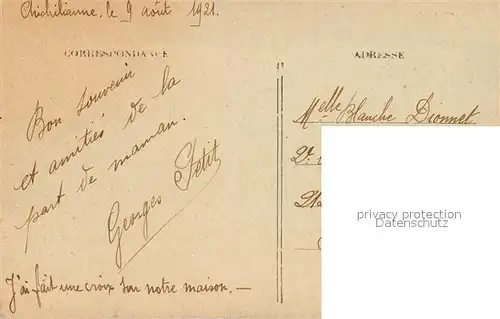 Chichilianne. le 9 août 1921.
CORRESPONDANCE
ADRESSE
Bon souvenir
et amitiés de la
part de maman.
Georges Petit
J'ai fait une croix sur notre maison. —
Melle Blanche Dionnet
privacy protection
watermark